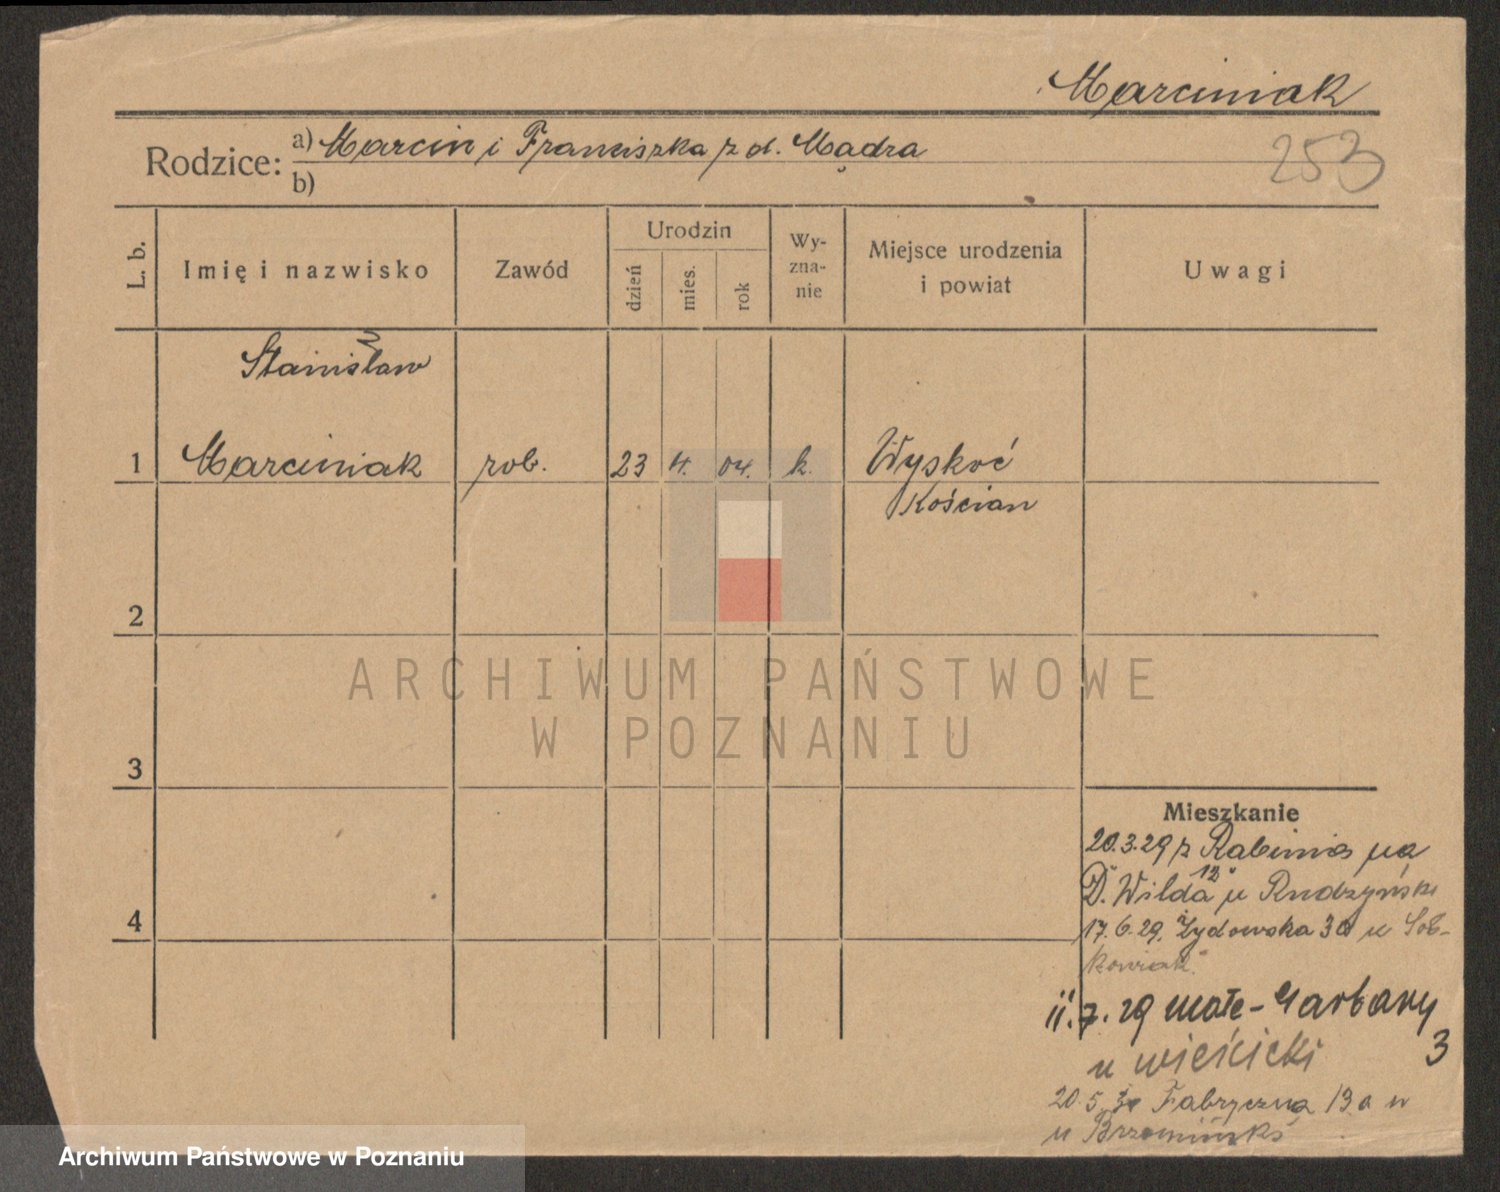 Marciniak
Rodzice: a) Marcin i Franciszka z d. Mądra
b)
253
L. b.
Imię i nazwisko
Zawód
Urodzin
dzień
mies.
rok
Wy-
zna-
nie
Miejsce urodzenia
i powiat
Uwagi
Stanisław
1 Marciniak rob. 23 4. 04. k. Wyskoć
Kościan
2
3
4
ARCHIWUM PAŃSTWOWE
W POZNANIU
Mieszkanie
20.3.29 z Rabinia na
D. Wilda 12 u Rudzyński
17.6.29. Żydowska 30 u Sob-
kowiak
11.7.29 małe-Garbary
3
u wieścicki
20.5. Fabryczna 13a
u
Archiwum Państwowe w Poznaniu